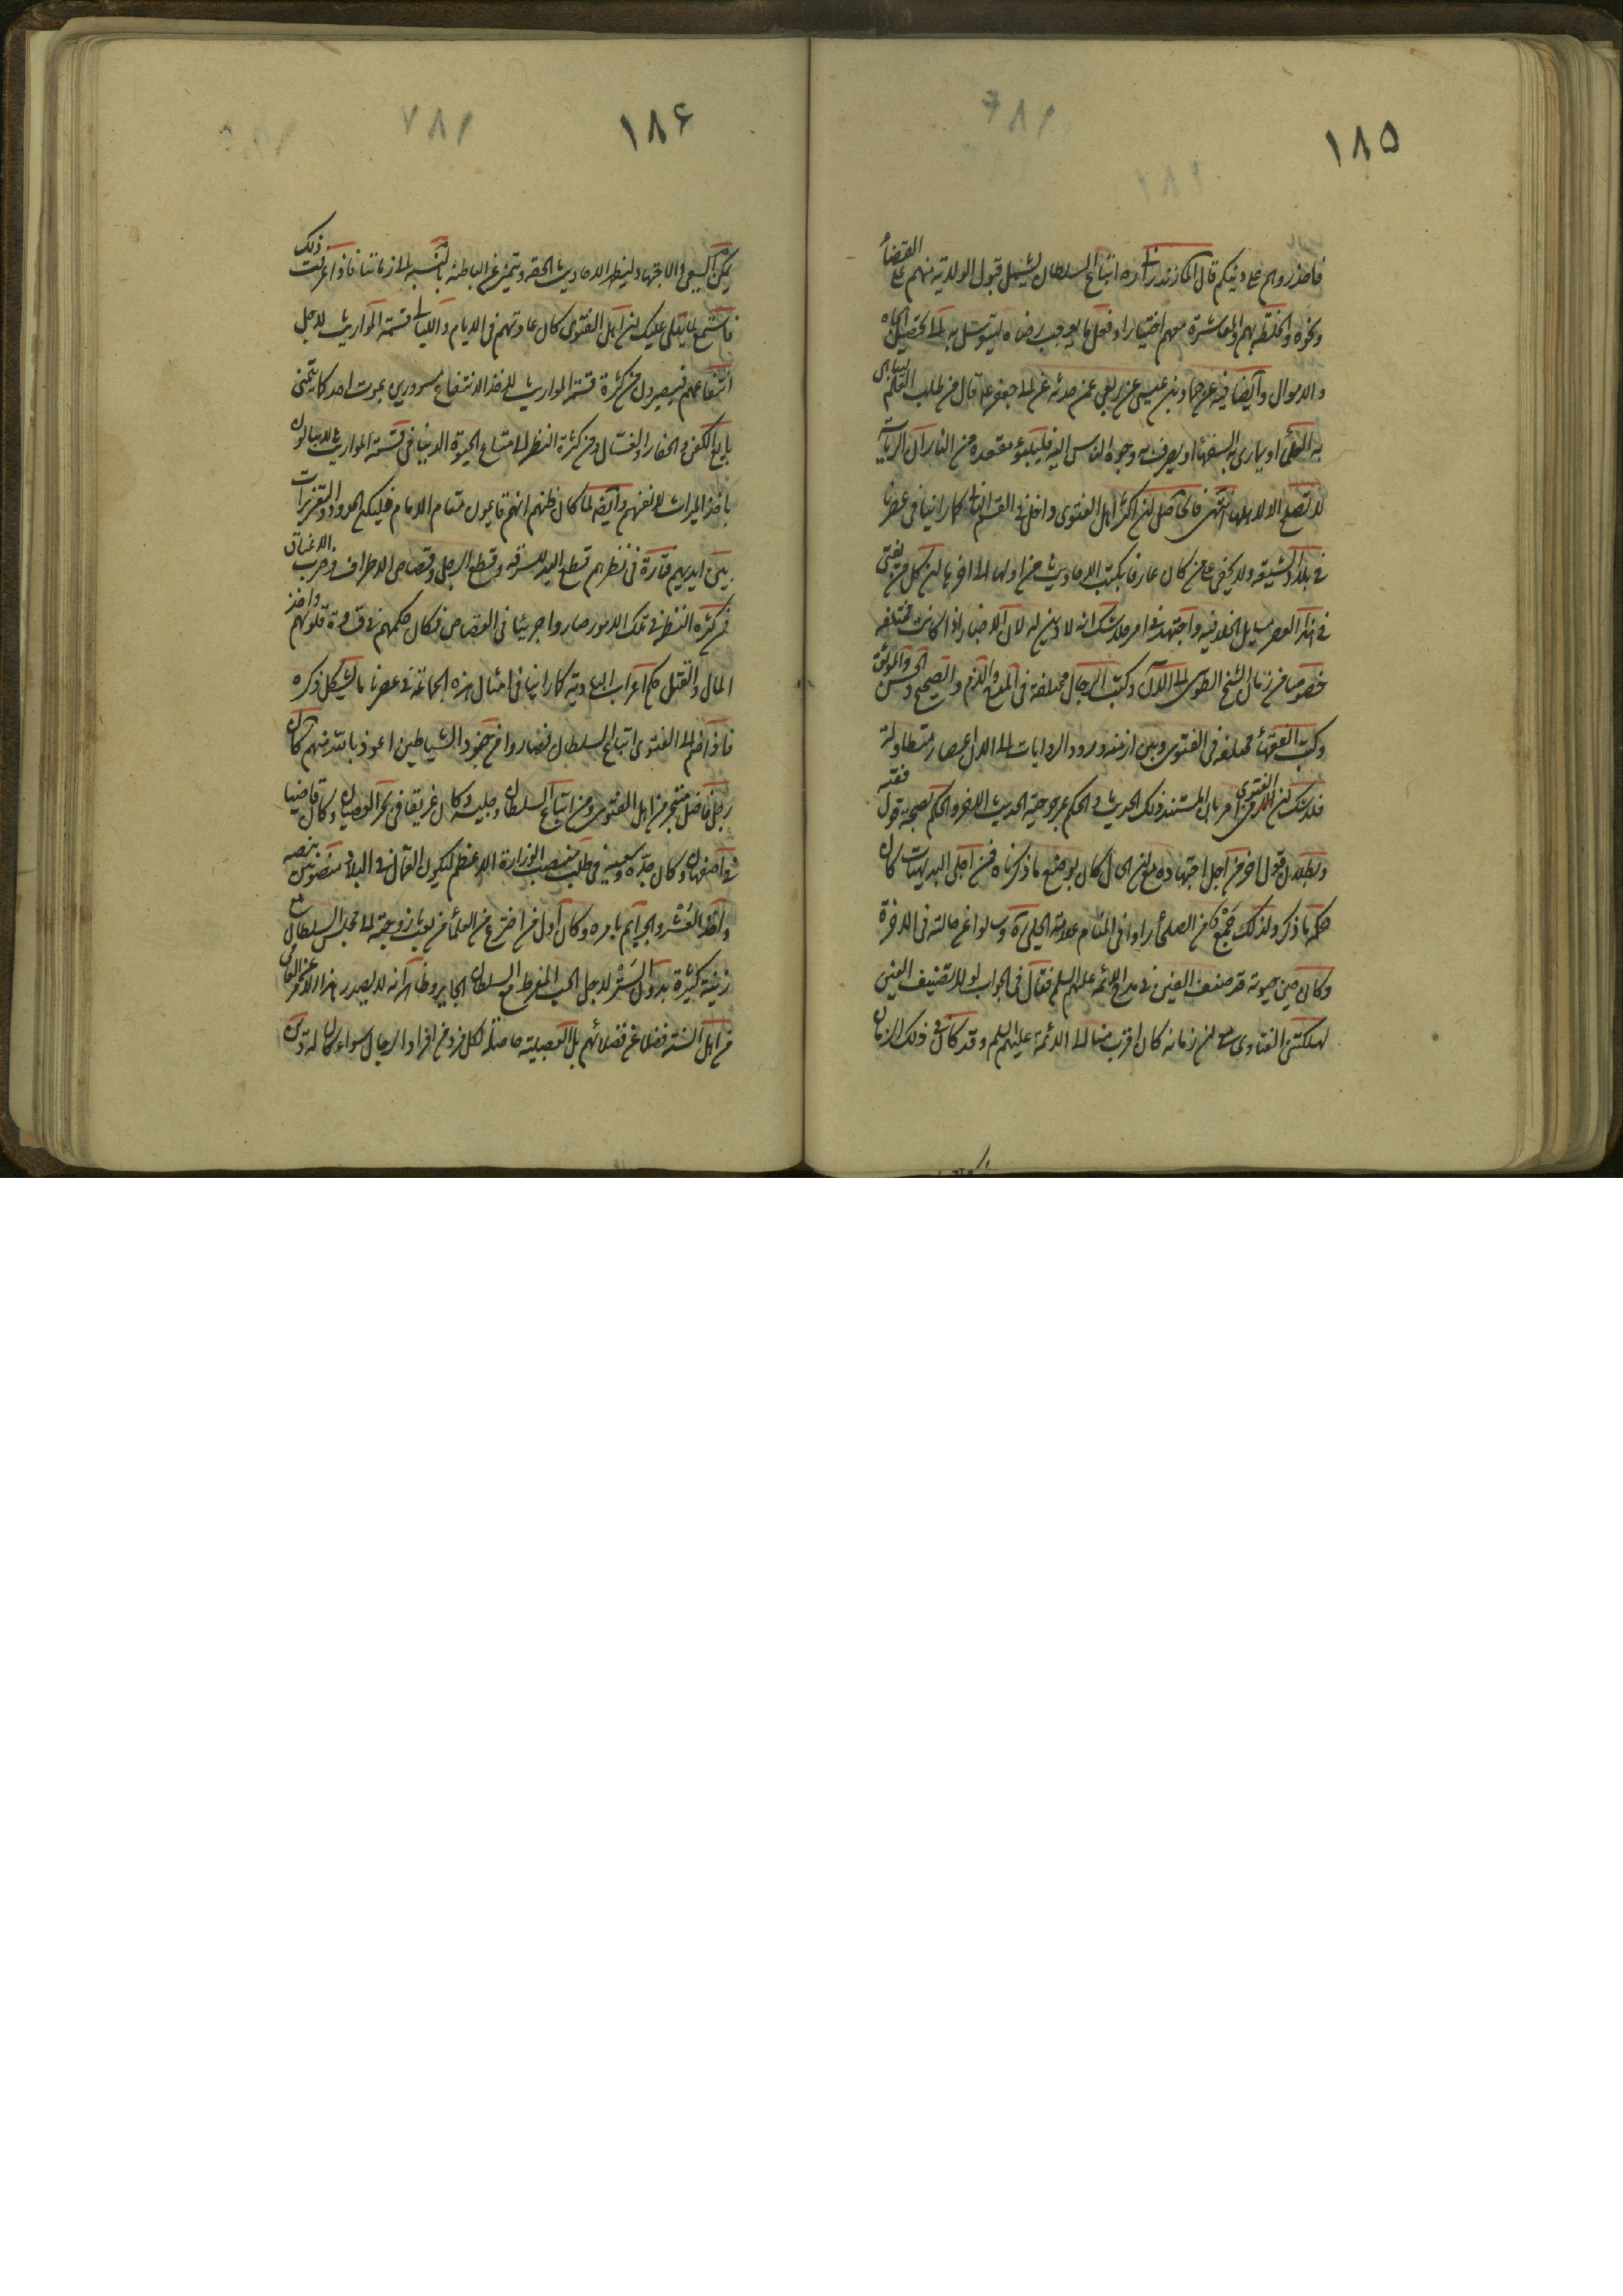 ١٨٥
فاحذروهم على دينكم قال المازندراني ره اتباع السلطان يشمل قبول الولاية منهم على القضاء
ونحوه والخلطة بهم والمعاشرة معهم اختيارا وفعل ما يوجب رضاه ليتوسل به الى تحصيل الجاه
والاموال وايضا فيه عن حماد بن عيسى عن ربعي عمن حدثه عن ابى جعفر ع قال من طلب العلم ليباهى
به العلماء او يمارى به السفهاء او يصرف به وجوه الناس اليه فليتبوء مقعده من النار ان الرياسة
لا تصلح الا لاهلها انتهى فالحاصل ان اكثر اهل الفتوى داخل في القسم الثاني كما راينا في عصرنا
في بلاد الشيعة ولا يخفى على من كان عارفا بكتب الاحاديث من اولها الى اخرها ان كل من يفتى
في هذا العصر المسايل الخلافية واجتهد في امر فلا شك انه لا دين له لان الاخبار اذا كانت مختلفة
خصوصا من زمان الشيخ الطوسى الى الان وكتب الرجال مختلفة في المدح والذم والصحيح والحسن والموثق
وكتب الفقهاء مختلفة في الفتوى وبين ازمنة ورود الروايات الى الان اعصار متطاولة
فلا شك ان الفتوى في امر بان المستند ذلك الحديث والحكم بمرجوحية الحديث الاخر والحكم بصحة قول فقيه
وبطلان قول اخر من اجل اجتهاده مع ان الحال كان بوضع ما ذكرناه فمن اجلى البديهيات كان
حكمه ما ذكر ولذلك جمع من الصلحاء راوا في المنام علامة الحلى ره وسالوا عن حالته في الاخرة
وكان حين حيوته قد صنف الفين في مدايح الائمة عليهم السلم فقال في الجواب لولا تصنيف الفين
لهلكتنى الفتاوى مع ان زمانه كان اقرب منا الى الائمة عليهم السلم وقد كان في ذلك الزمان
١٨۶
يمكن السعى والاجتهاد لينظر الاحاديث الحقة وتميز عن الباطلة بالنسبة الى زماننا فاذا عرفت ذلك
فاستمع لما يتلى عليك ان اهل الفتوى كان عادتهم في الايام والليالى قسمة المواريث لاجل
انتفاعهم فيصيرون من كثرة قسمة المواريث لاخذ الانتفاع مسرورين بموت احد كما يتمنى
بايع الكفن والحفار والغسال ومن كثرة النظر الى متاع الحيوة الدنيا في قسمة المواريث لا يبالون
باخذ الميراث لانفسهم وايضا لما كان ظنهم انهم قايمون مقام الامام فيكم الحدود والتعزيرات
بين ايديهم فتارة في نظرهم قطع اليد للسرقة وقطع الرجل وقصاص الاطراف وضرب الاعناق
فمن كثرة النظر في تلك الامور صاروا جريئا في القصاص فكان حكمهم في قساوة قلوبهم واخذ
المال والقتل حكم اعراب البادية كما راينا في امثال هذه الجماعة في عصرنا ما يشكل ذكره
فاذا انضم الى الفتوى اتباع السلطان فصاروا من جنود الشياطين اعوذ بالله منهم كان
رجل فاضل متبحر من اهل الفتوى ومن اتباع السلطان وجليسه وكان غريقا في بحر العصيان وكان قاضيا
في اصفهان وكان جده وسعيه في طلب منصب الوزارة الاعظم ليكون العمال في البلاد منصوبين بنصبه
واخذ العشر والجرايم بامره وكان اول من اخترع من العلماء من بعث زوجته الى مجلس السلطان مع
زينة كثيرة بدون الستر لاجل الحب المفرط مع السلطان الجاير وظاهرا انه لا يصدر هذا الامر عن العامى
من اهل السنة فضلا عن فضلائهم بل العصبية حاصلة لكل فرد من افراد الرجال سواء كان له دين